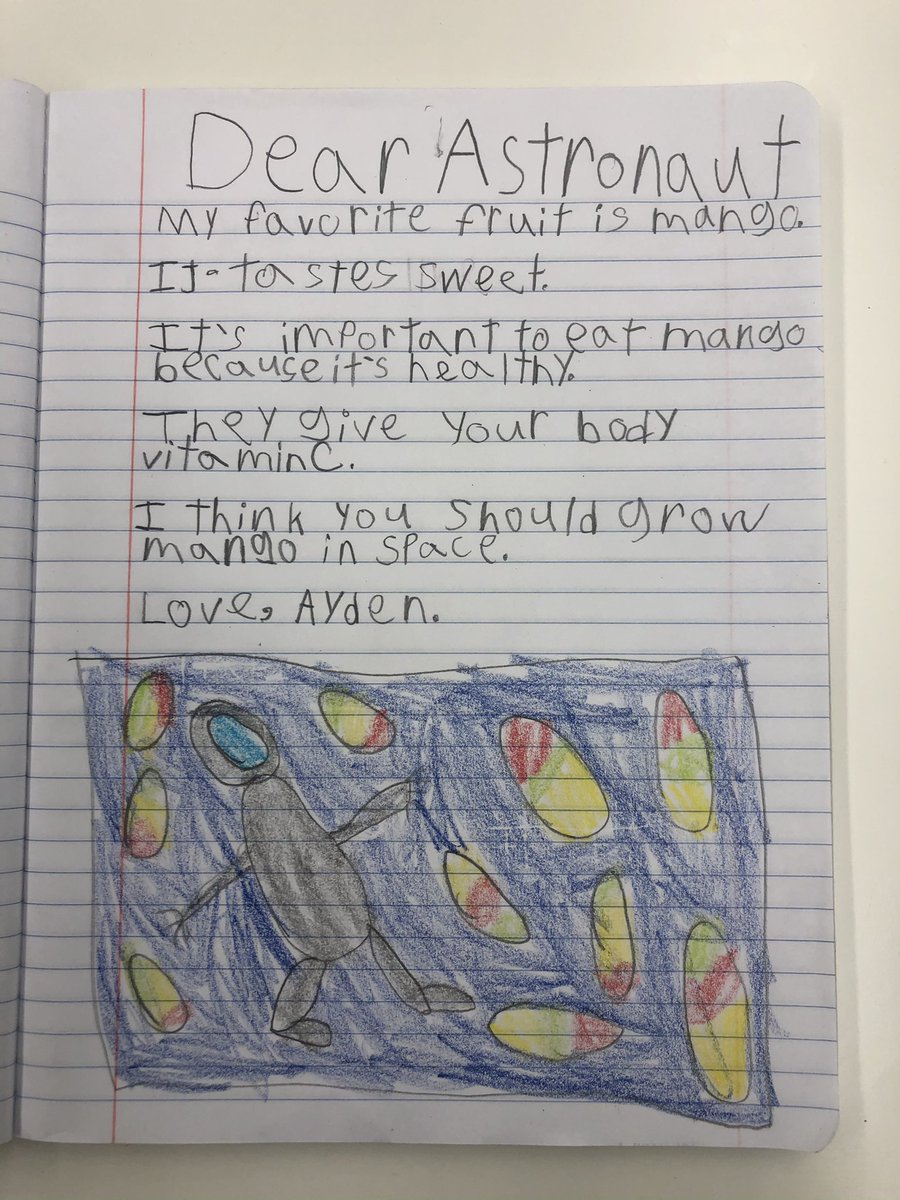 Dear Astronaut
My favorite fruit is mango.
It tastes sweet.
It's important to eat mango
because it's healthy.
They give your body
vitamin C.
I think you should grow
mango in space.
Love, Ayden.